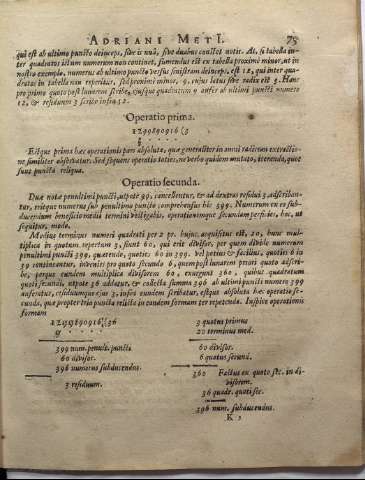 ADRIANI METI. 75
qui est ab ultimo puncto deinceps, sive is unâ, sive duabus constet notis. At, si tabella in-
ter quadratos istum numerum non contineat, sumendus est ex tabella proximè minor, ut in
nostro exemplo, numerus ab ultimo puncto versus sinistram deinceps, est 12, qui inter qua-
dratos in tabella non reperitur, sed proximè minor, 9, cujus latus sive radix est 3. Hanc
pro primo quoto post lunarem scribe, ejusque quadratum 9 aufer ab ultimi puncti numero
12, & residuum 3 scribito infra 12.
Operatio prima.
1239890916 (3
Estque prima hæc operationis pars absoluta, quæ generaliter in omni radicum extractio-
ne similiter observatur. Sed sequens operatio toties, ne verbo quidem mutato, iteranda, quot
sunt puncta reliqua.
Operatio secunda.
Duæ notæ penultimi puncti, utpote 99, cancellentur, et ad dextras residui 3, adscriban-
tur, eritque numerus sub penultimo puncto comprehensus hic 399. Numerum ex eo sub-
ducendum beneficio medii termini vestigabis, operationemque secundam perficies, hoc, ut
sequitur, modo.
Medius terminus numeri quadrati per 2 pr. hujus, acquisitus est, 20, hunc mul-
tiplica in quotum repertum 3, fiunt 60, qui erit divisor, per quem divide numerum
penultimi puncti 399, quærendo, quoties 60 in 399. Vel potius & facilius, quoties 6 in
39 contineantur, invenies pro quoto secundo 6, quem post lunarem priori quoto adscri-
be, perque eundem multiplica divisorem 60, exurgent 360, quibus quadratum
quoti secundi, utpote 36 addatur, & collecta summa 396 ab ultimi puncti numero 399
auferatur, residuumque ejus 3, infra eundem scribatur, estque absoluta hæc operatio se-
cunda, quæ propter tria puncta relicta in eandem formam ter repetenda. Inspice operationis
formam
3 quotus primus
20 terminus med.
399 num. penult. puncti
60 divisor.
60 divisor.
6 quotus secund.
396 numerus subducendus.
360 Factus ex quoto sec. in di-
visorem.
3 residuum.
36 quadr. quoti sec.
396 num. subducendus.
K 2